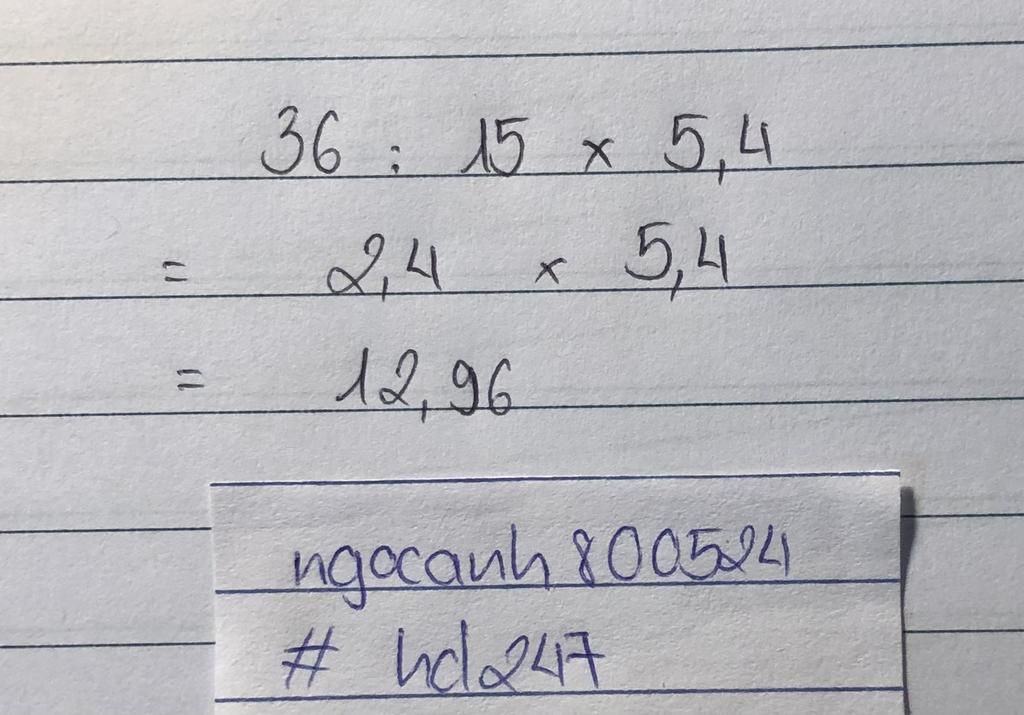 36 : 15 x 5,4
= 2,4 x 5,4
= 12,96
ngocanh800524
# hd247